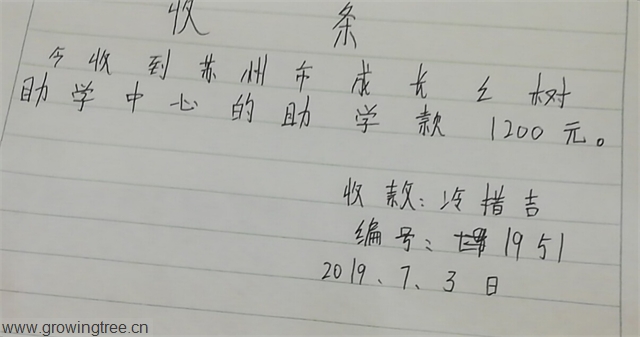 收 条
今收到苏州市成长之树
助学中心的助学款 1200元。
收款:冷措吉
编号: 1951
2019、7、3日
www.growingtree.cn